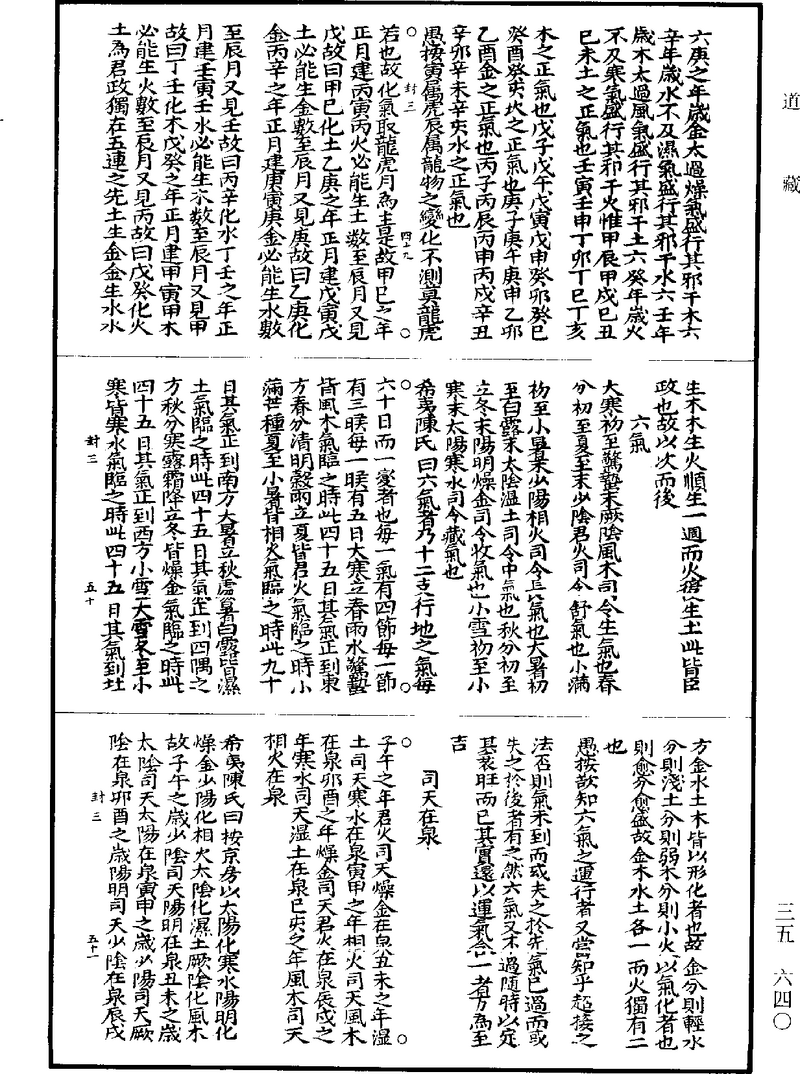 道藏
六庚之年歲金太過燥氣盛行其邪干木六
辛年歲水不及濕氣盛行其邪干水六壬年
歲木太過風氣盛行其邪干土六癸年歲火
不及寒氣盛行其邪干火惟甲辰甲戌己丑
己未土之正氣也壬寅壬申丁卯丁巳丁亥
木之正氣也戊子戊午戊寅戊申癸卯癸巳
癸酉癸亥火之正氣也庚子庚午庚申乙卯
乙酉金之正氣也丙子丙辰丙申丙戌辛丑
辛卯辛未辛亥水之正氣也
愚按寅屬虎辰屬龍物之變化不測莫龍虎
封三 四十九
若也故化氣取龍虎月為主是故甲巳之年
正月建丙寅丙火必能生土數至辰月又見
戊故曰甲巳化土乙庚之年正月建戊寅戊
土必能生金數至辰月又見庚故曰乙庚化
金丙辛之年正月建庚寅庚金必能生水數
至辰月又見壬故曰丙辛化水丁壬之年正
月建壬寅壬水必能生木數至辰月又見甲
故曰丁壬化木戊癸之年正月建甲寅甲木
必能生火數至辰月又見丙故曰戊癸化火
土為君政獨在五運之先土生金金生水水
生木木生火順生一週而火復生土此皆臣
政也故以次而後
六氣
大寒初至驚蟄末厥陰風木司令生氣也春
分初至夏至末少陰君火司令舒氣也小滿
初至小暑末少陽相火司令長氣也大暑初
至白露末太陰溫土司令中氣也秋分初至
立冬末陽明燥金司令收氣也小雪初至小
寒末太陽寒水司令藏氣也
希夷陳氏曰六氣者乃十二支行地之氣每
六十日而一變者也每一氣有四節每一節
有三㬋每一㬋有五日大寒立春雨水驚蟄
皆風木氣臨之時此四十五日其氣正到東
方春分清明穀雨立夏皆君火氣臨之時小
滿芒種夏至小暑皆相火氣臨之時此九十
日其氣正到南方大暑立秋處暑白露皆濕
土氣臨之時此四十五日其氣正到四隅之
方秋分寒露霜降立冬皆燥金氣臨之時此
四十五日其氣正到西方小雪大雪冬至小
封三 五十
寒皆寒水氣臨之時此四十五日其氣到北
方金水土木皆以形化者也故金分則輕水
分則淺土分則弱木分則小火以氣化者也
則愈分愈盛故金木水土各一而火獨有二
也
愚按欲知六氣之運行者又當知乎超接之
法否則氣未到而或失之於先氣已過而或
失之於後者有之然六氣又不過隨時以定
其衰旺而已其實還以運氣合一者方為至
吉
司天在泉
子午之年君火司天燥金在泉丑未之年濕
土司天寒水在泉寅申之年相火司天風木
在泉卯酉之年燥金司天君火在泉辰戌之
年寒水司天濕土在泉巳亥之年風木司天
相火在泉
希夷陳氏曰按京房以太陽化寒水陽明化
燥金少陽化相火太陰化濕土厥陰化風木
故子午之歲少陰司天陽明在泉丑未之歲
太陰司天太陽在泉寅申之歲少陽司天厥
封三 五十一
陰在泉卯酉之歲陽明司天少陰在泉辰戌
三五 六四〇